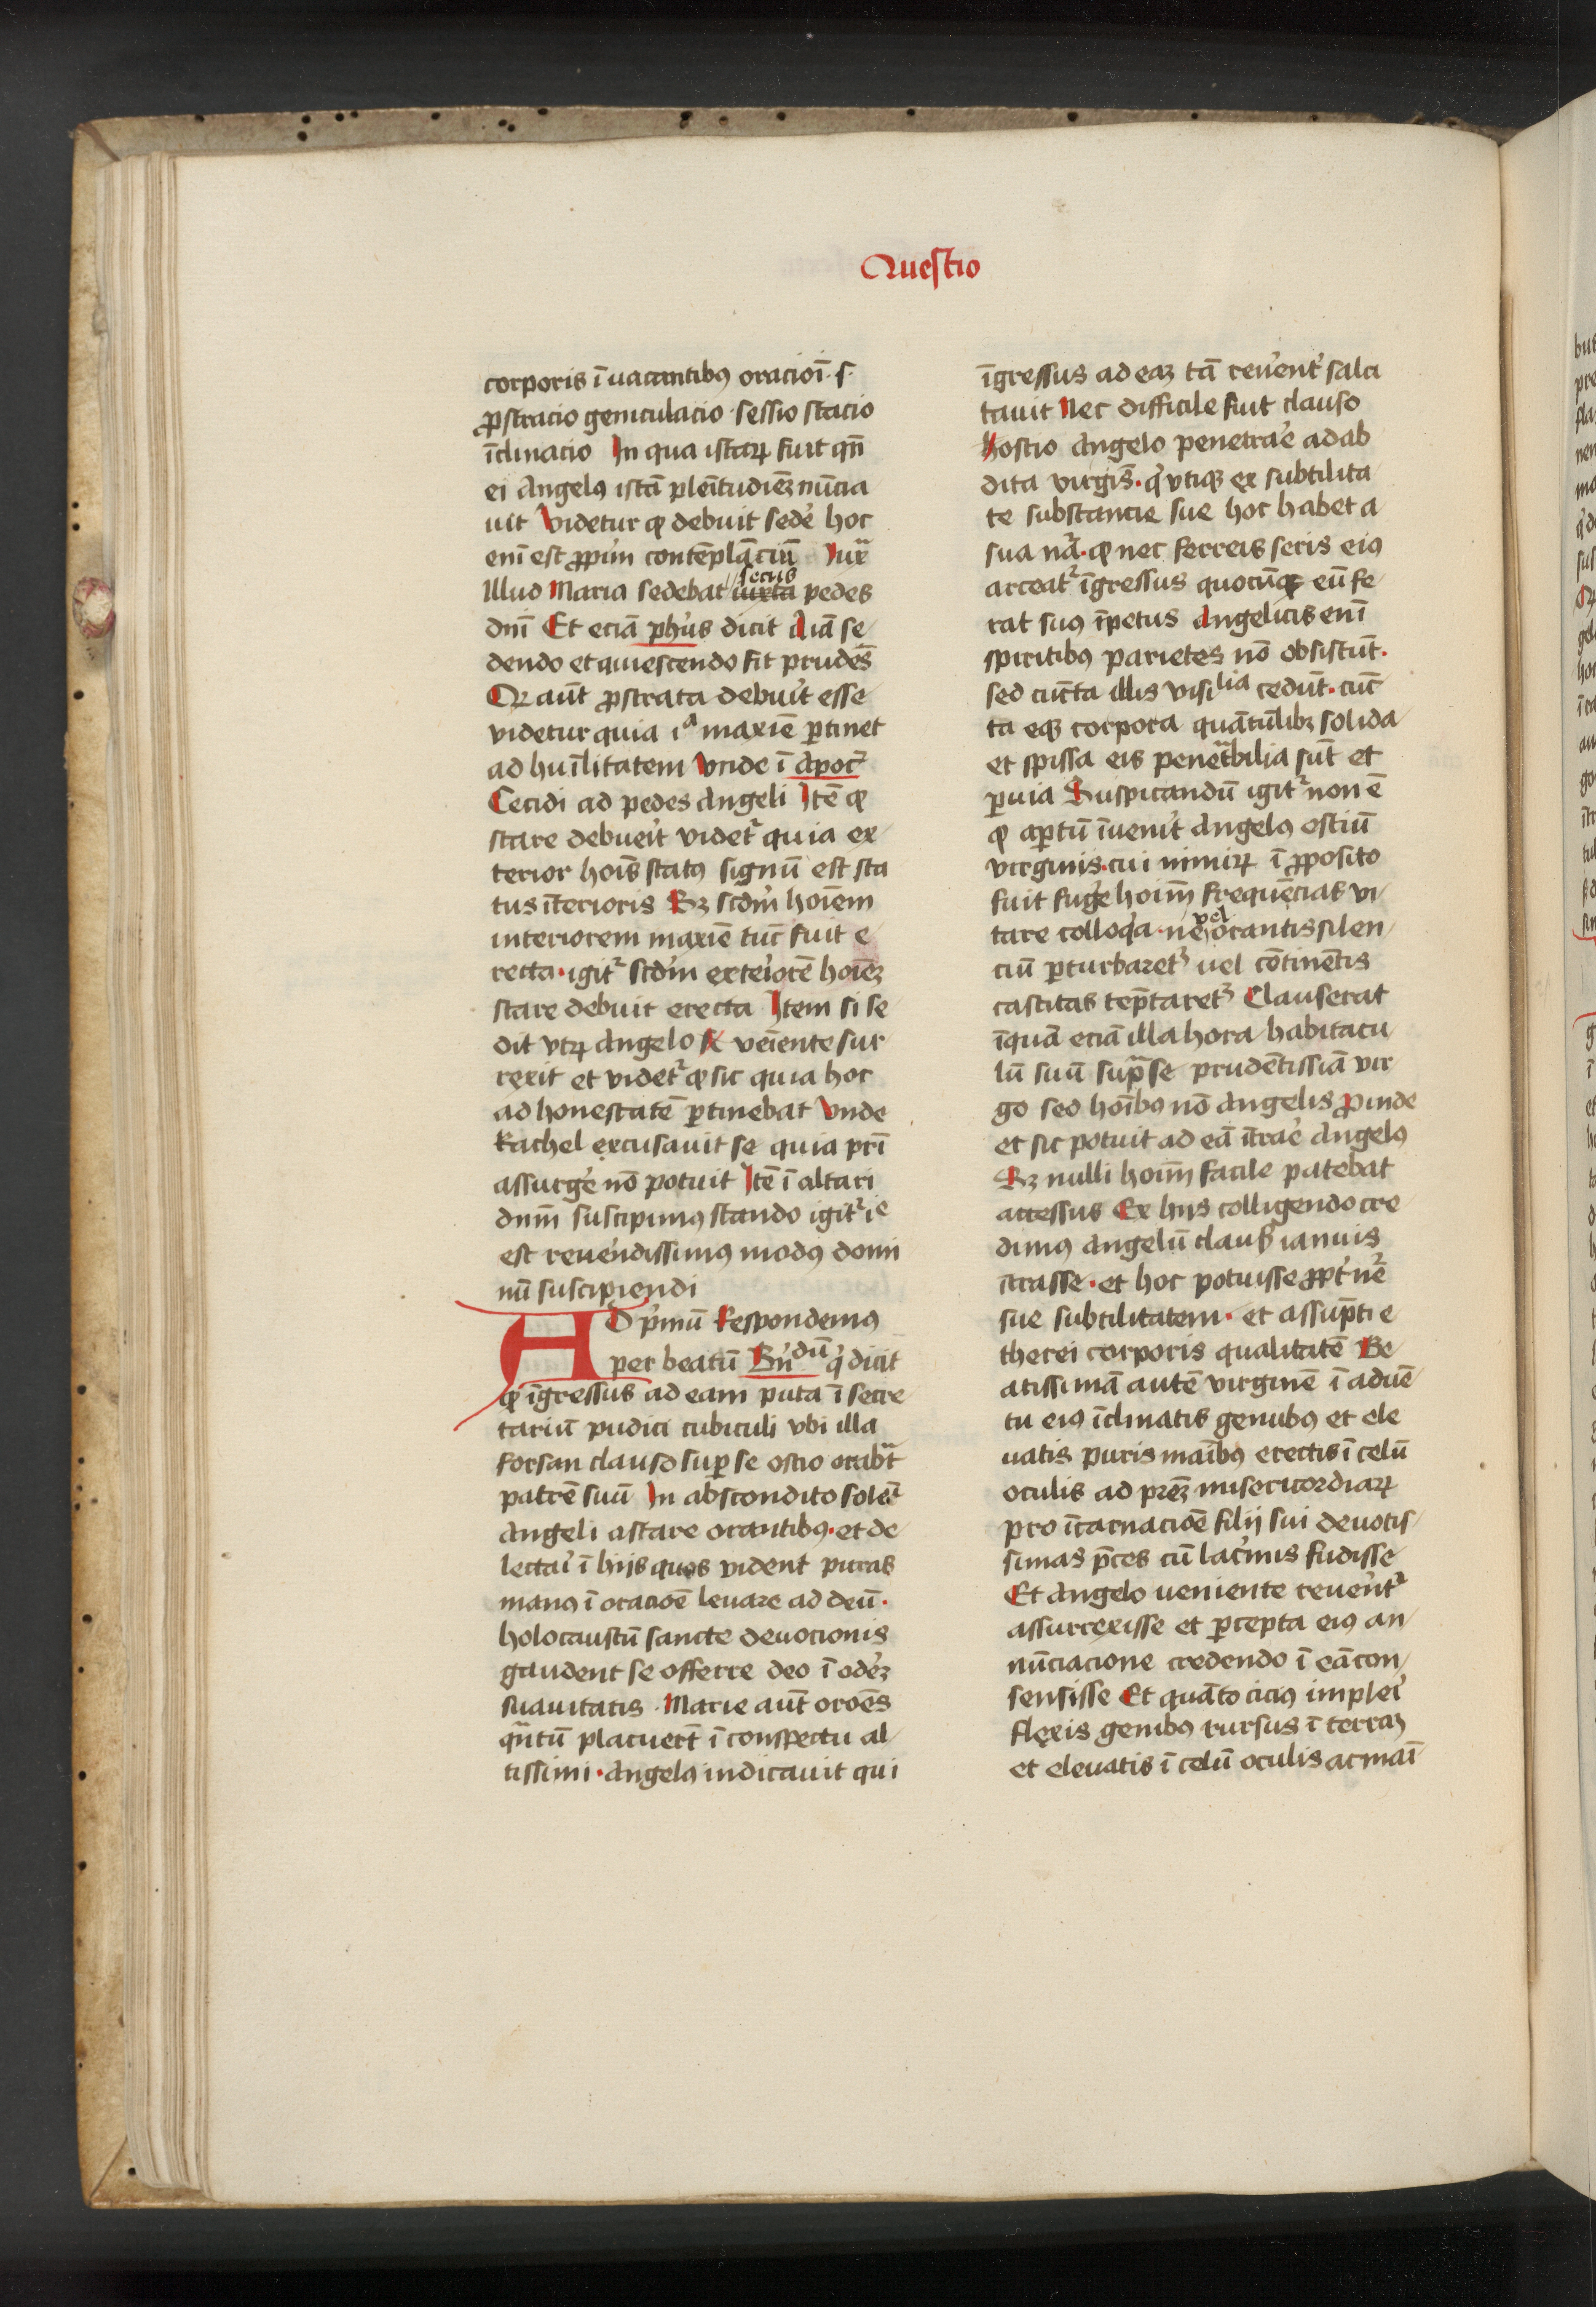 Questio
corporis ī uacantibꝰ oracioī · s ·
ꝓstracio geniculacio · sessio stacio
īclinacio In qua istaꝝ fuit qn̄
ei Angelꝰ istā pleītudieꝫ nūcia
uit Videtur ꝙ debuit sede᷑ hoc
eni̅ est ꝓpriu᷑m contēplāciū Iux̄
Illud Maria sedebat secus iuxta pedes
dnī Et eciā ph᷑us dicit Aīa se
dendo et quiescendo fit prudēs
Qꝫ aūt ꝓstrata debuit esse
videtur quia iᵃ maxiē ꝑtinet
ad hūilitatem Vnde ī Apoc᷑
Cecidi ad pedes Angeli Itē ꝙ
stare debueit᷑ videt᷑ quia ex
terior hoīs statꝰ signū est sta
tus īterioris Sꝫ scdm᷑ hoīem
interiorem maxiē tūc fuit e
recta · igit᷑ scdm᷑ exteiorē᷑ hoīeꝫ
stare debuit erecta Item si se
dit vtꝝ Angelo veīente sur
rexit et videt᷑ ꝙ sic quia hoc
ad honestatē ꝑtinebat Vnde
Rachel excusauit se quia pr̄i
assurge᷑ nō potuit Itē ī altari
dnm̄ suscipimꝰ stando igit᷑ iᵉ
est reue᷑ndissimꝰ modꝰ domi
nū suscipiendi
AD pi᷑mū Respondemꝰ
per beatū Bn᷑dū q᷑ dicit
ꝙ īgressus ad eam puta ī secre
tariū pudici cubiculi vbi illa
forsan clauso suꝑ se ostio orabat᷑
patrē suū In abscondito solēt
Angeli astare orantibꝰ · et de
lectai᷑ ī hijs quos vident puras
manꝰ ī oracioē leuare ad deū ·
holocaustū sancte deuocionis
gaudent se offerre deo ī odeꝫ᷑
suauitatis · Marie aūt oroēs
qn̄tū placuert᷑ ī conspectu al
tissimi · Angelꝰ indicauit qui
īgressus ad eaꝫ tā reue᷑nt᷑ salu
tauit Nec difficile fuit clauso
hostio Angelo penetrae᷑ ad ab
dita virgīs · q᷑ vtiqꝫ ex subtilita
te substancie sue hoc habet a
sua nā᷑ · ꝙ nec ferreis seris eiꝰ
arceat᷑ īgressus quocūqꝫ eū fe
rat suꝰ īpetus Angelicis enī
spiritibꝰ parietes nō obsistūt ·
sed cūcta illis visibilia cedūt · cūc
ta eqꝫ corpora quātūlibꝫ solida
et spissa eis penetᷓbilia sūt et
ꝑuia Suspicandū igit᷑ non ē
ꝙ aꝑtū īuenit᷑ Angelꝰ ostiū
virginis · cui nimiꝝ ī ꝓposito
fuit fuge᷑ hoim̄ frequēcias vi
tare colloq᷑a · ne vel orantis silen
ciū ꝑturbaret᷑ uel cōtinētis
castitas tēptaret᷑ Clauserat
īquā eciā illa hora habitacu
lū suū supᷓ se prudētissiā vir
go sed hoībꝰ nō Angelis ꝓinde
et sic potuit ad eā ītrae᷑ Angelꝰ
Sꝫ nulli hoim̄ facile patebat
accessus Ex hijs colligendo cre
dimꝰ Angelū claus᷑ ianuis
ītrasse · et hoc potuisse ꝓpt᷑ nē᷑
sue subtilitatem · et assūpti e
therei corporis qualitatē Be
atissimā autē virginē ī aduē
tu eiꝰ īclinatis genubꝰ et ele
uatis puris maībꝰ erectis ī celū
oculis ad pr̄eꝫ misericordiaꝝ
pro īcarnacioē filij sui deuotis
simas p̄ces cū lac᷑mis fudisse
Et Angelo veniente reue᷑nt᷑
assurrexisse et ꝑcepta eiꝰ an
nūciacione credendo ī eā con
sensisse Et quāto ciciꝰ implei᷑
flexis genibꝰ rursus ī terraꝫ
et eleuatis ī celū oculis ac maī